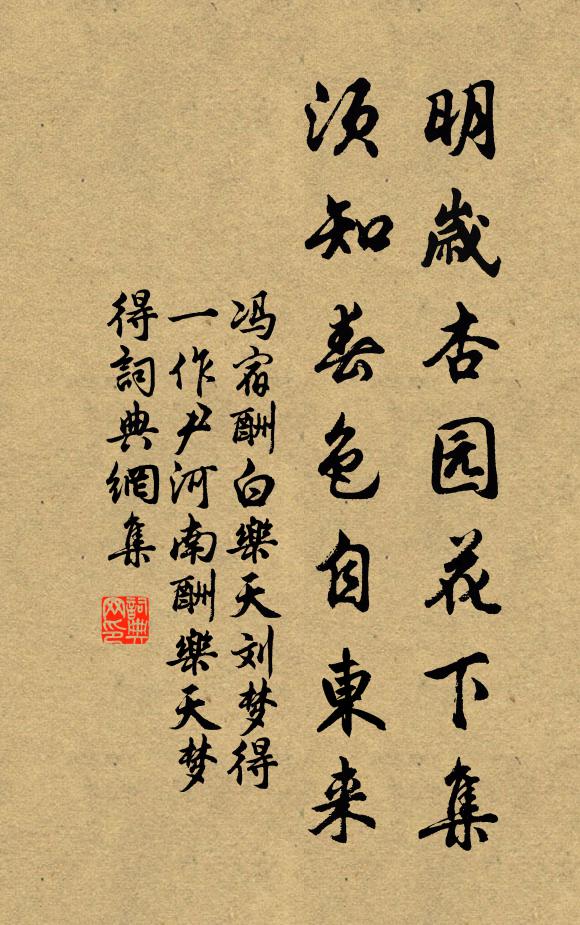 明歲杏园花下集
须知春色自東来
冯宿酬白樂天刘梦得
一作尹河南酬樂天梦
得詞典網集
詞典网印